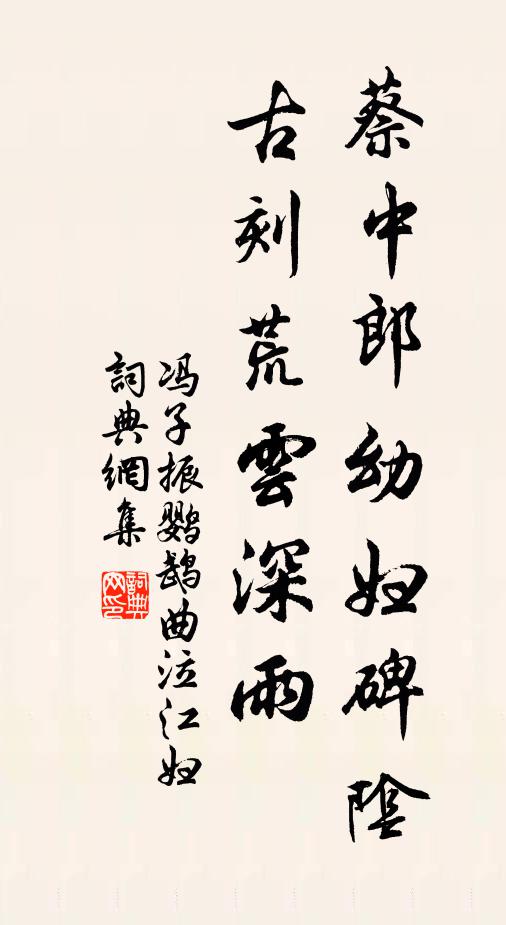 蔡中郎幼妇碑陰
古刻荒雲深雨
冯子振鹦鹉曲泣江妇
詞典網集
詞典網印